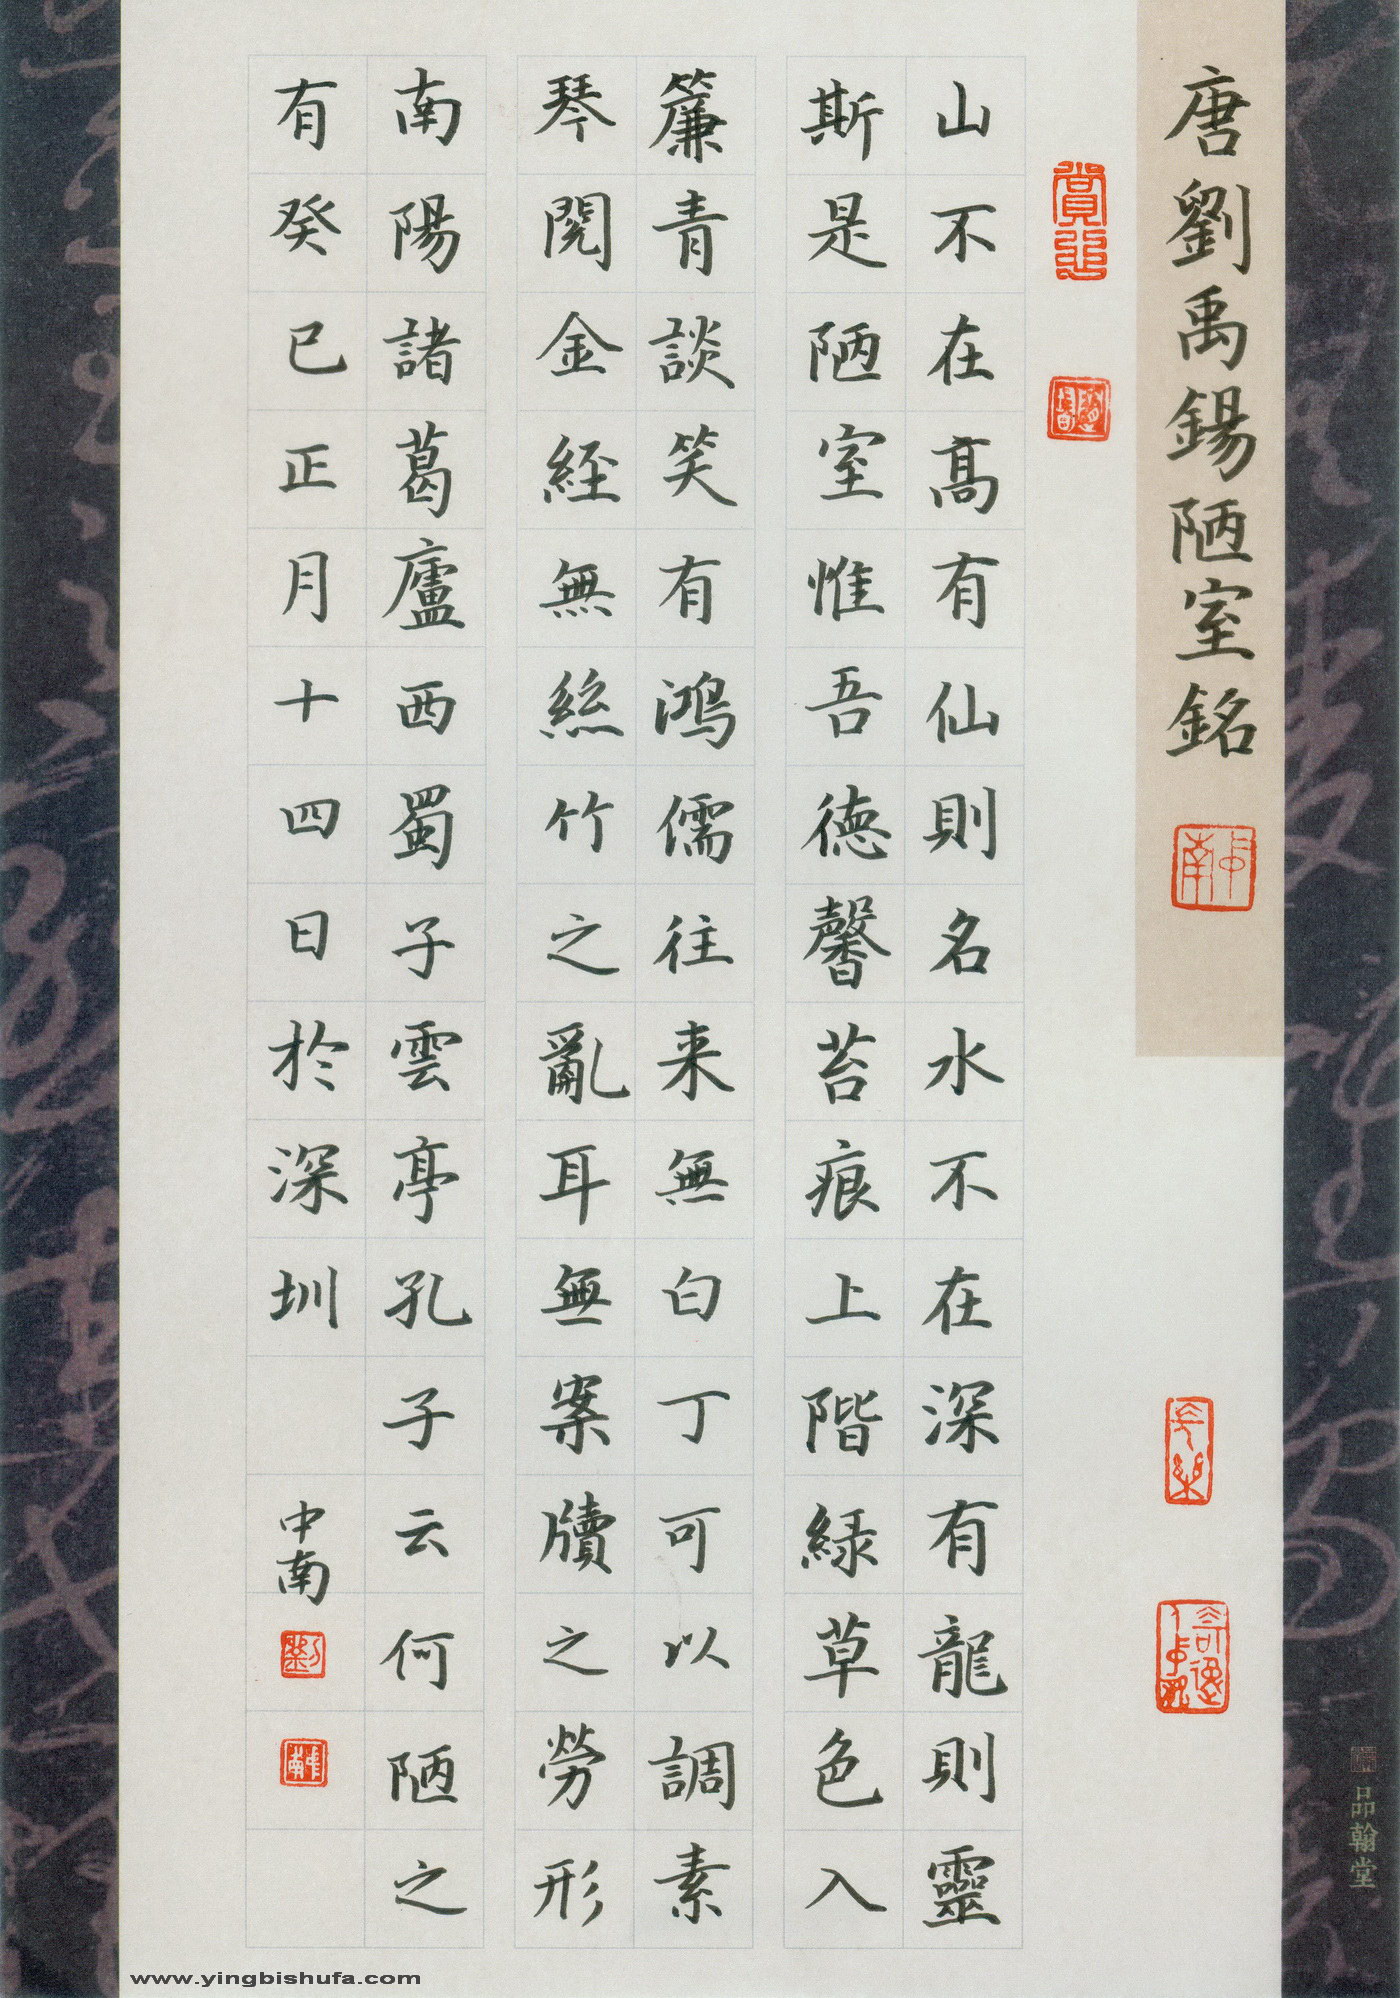 唐劉禹錫陋室銘
山不在高有仙則名水不在深有龍則靈
斯是陋室惟吾德馨苔痕上階綠草色入
簾青談笑有鴻儒往来無白丁可以調素
琴閱金經無絲竹之亂耳無案牘之勞形
南陽諸葛廬西蜀子雲亭孔子云何陋之
有癸巳正月十四日於深圳
中南
品翰堂
www.yingbishufa.com